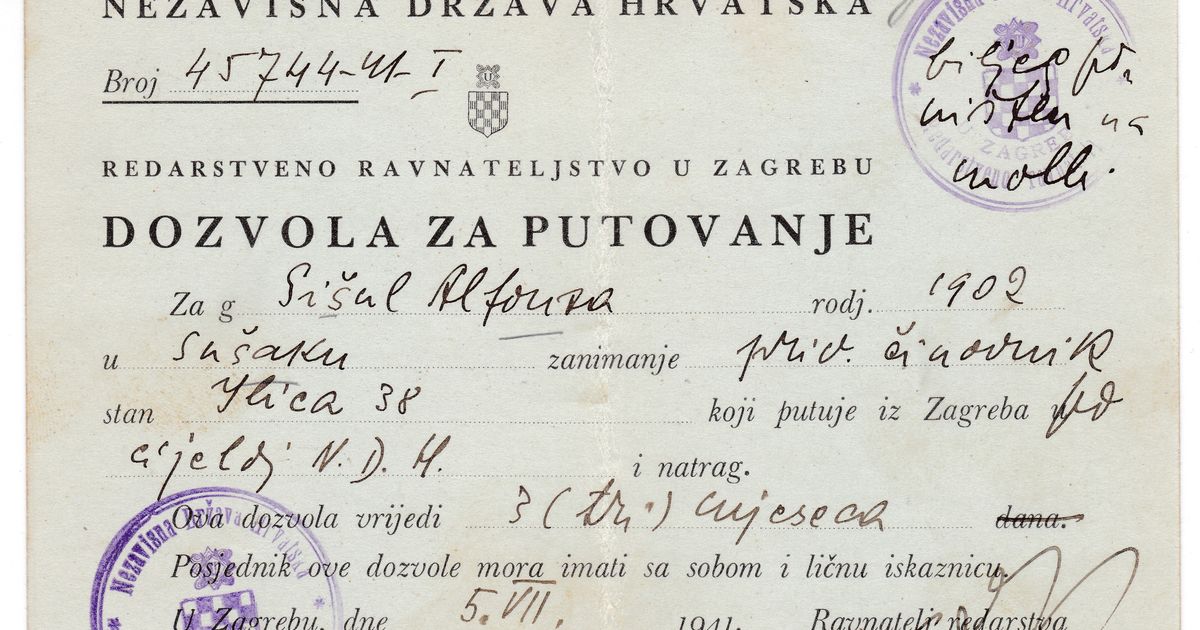 NEZAVISNA DRŽAVA HRVATSKA
Broj 45744-41-I
U
REDARSTVENO RAVNATELJSTVO U ZAGREBU
DOZVOLA ZA PUTOVANJE
Za g Sišul Alfonsa rodj. 1902
u Sušaku zanimanje priv. činovnik
stan Ilica 38 koji putuje iz Zagreba po
cijeloj N. D. H. i natrag.
Ova dozvola vrijedi 3 (tri) mjeseca dana.
Posjednik ove dozvole mora imati sa sobom i ličnu iskaznicu.
U Zagrebu, dne 5. VII. 1941. Ravnatelj redarstva
biljeg po-
ništen na
molb.
Nezavisna Hrvatska
U ZAGREBU
Redarstveno
Nezavisna Država Hrvatska